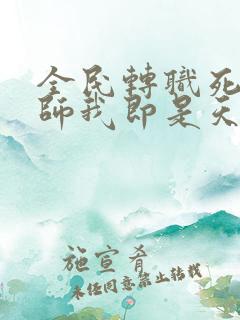 全民轉職死
師我即是天
施宣肴
未经同意禁止转载